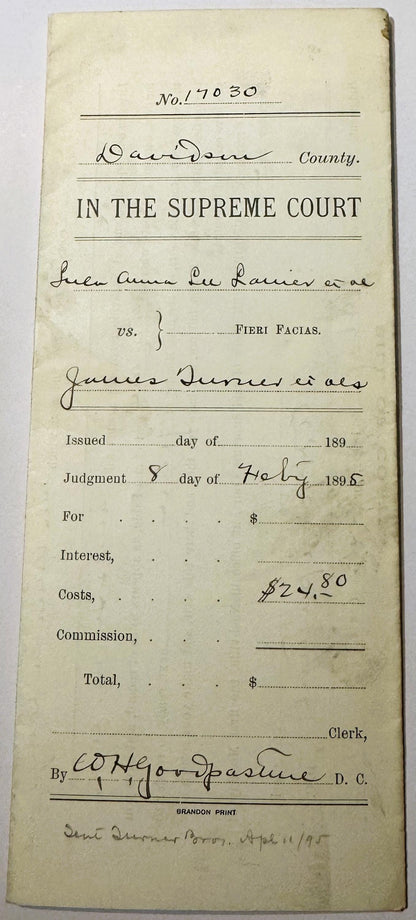 No. 17030
Davidson County.
IN THE SUPREME COURT
Lula Anna Lee Lanier et al
vs. } FIERI FACIAS.
James Turner et als
Issued day of 189
Judgment 8 day of Feby 1895
For . . . $
Interest, . .
Costs, . . . $24.80
Commission, . . .
Total, . . . $
Clerk,
By W.H. Goodpasture D. C.
BRANDON PRINT
Sent Turner Bros. Apl 11/95